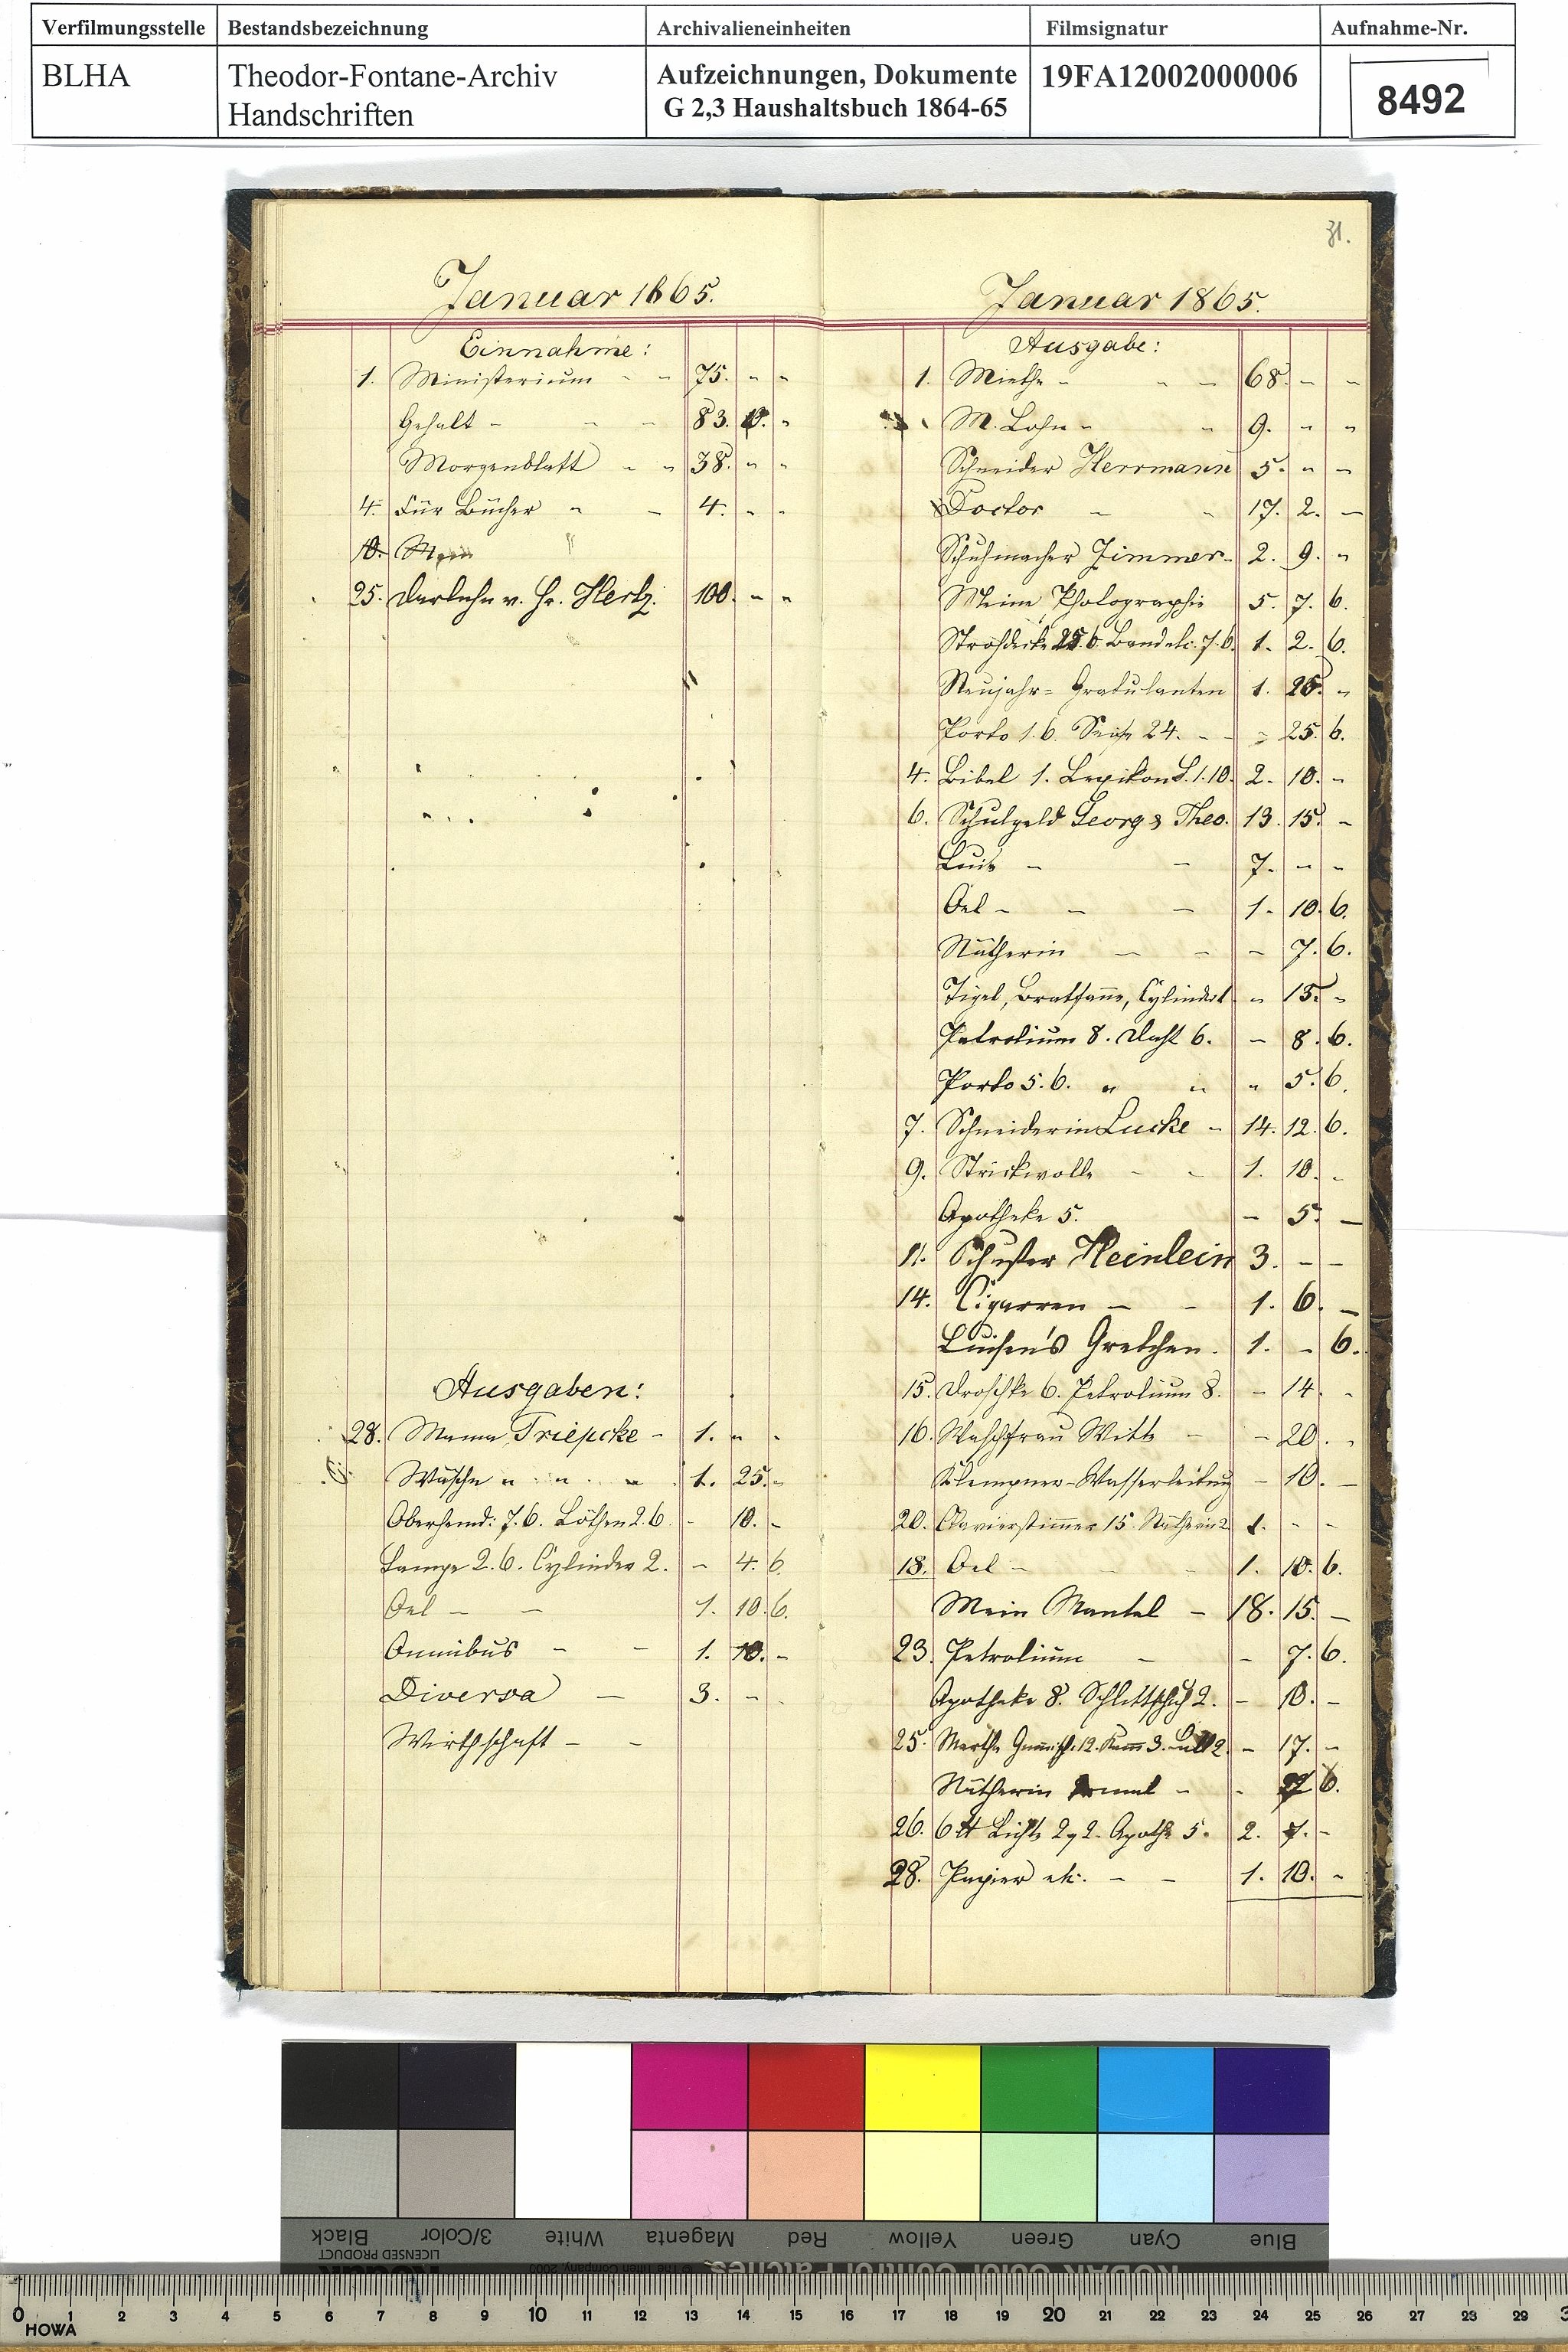 Verfilmungsstelle Bestandsbezeichnung Archivalieneinheiten Filmsignatur Aufnahme-Nr.
BLHA Theodor-Fontane-Archiv Aufzeichnungen, Dokumente 19FA12002000006 8492
Handschriften G 2,3 Haushaltsbuch 1864-65
31.
Januar 1865.
Einnahme:
1. Ministerium - - 75. - -
Gehalt - - - 83. 10. -
Morgenblatt - - 38. - -
4. Für Bücher - - 4. - -
10. Mein
25. Darlehn v. Hr. Hertz. 100. - -
Ausgaben:
28. Mama Triepcke - 1. - -
Wäsche " " " 1. 25. -
Oberhemd: 7.6. Löthen 2.6. - 10. -
Lampe 2.6. Cylinder 2. - 4. 6.
Oel - - 1. 10. 6.
Omnibus - - 1. 10. -
Diversa - 3. - -
Wirthschaft - -
Januar 1865.
Ausgabe:
1. Miethe - - - 68. - -
M. Lohn - - 9. - -
Schneider Herrmann 5. - -
Doctor - - 17. 2. -
Schuhmacher Zimmer - 2. 9. -
Meine Photographie 5. 7. 6.
Strohdecke 25.6. Band etc. 7.6. 1. 2. 6.
Neujahr-Gratulanten 1. 25. -
Porto 1.6. Seife 24. - - - 25. 6.
4. Bibel 1. Lexikon 1.10. 2. 10. -
6. Schulgeld Georg & Theo. 13. 15. -
Luise - - 7. - -
Oel - - - 1. 10. 6.
Nätherin - - - 7. 6.
Tigel, Bratpfanne, Cylinder - 15. -
Petroleum 8. Docht 6. - 8. 6.
Porto 5.6. " " " 5. 6.
7. Schneiderin Lucke - 14. 12. 6.
9. Strickwolle - - 1. 10. -
Apotheke 5. - 5. -
11. Schuster Heinlein 3. - -
14. Cigarren - - 1. 6. -
Luisen's Gretchen. 1. - 6.
15. Droschke 6. Petroleum 8. - 14. -
16. Waschfrau Witte - - 20. -
Klempner-Wasserleitung - 10. -
20. Clavierstimmer 15. Nätherin 1. - -
18. Oel - - - 1. 10. 6.
Mein Mantel - 18. 15. -
23. Petroleum - - 7. 6.
Apotheke 8. Schlittschuh 2. - 10. -
25. Marthe 12. Kamm 3. 2. - 17. -
Nätherin - - 7. 6.
26. 6 ℔ Lichte Apothke 5. 2. 7. -
28. Papier etc. - - 1. 10. -
Black 3/Color White Magenta Red Yellow Green Cyan Blue
LICENSED PRODUCT
Kodak
© The Tiffen Company, 2000
KODAK Color Control Patches
0 1 2 3 4 5 6 7 8 9 10 11 12 13 14 15 16 17 18 19 20 21 22 23 24 25 26 27 28 29
HOWA